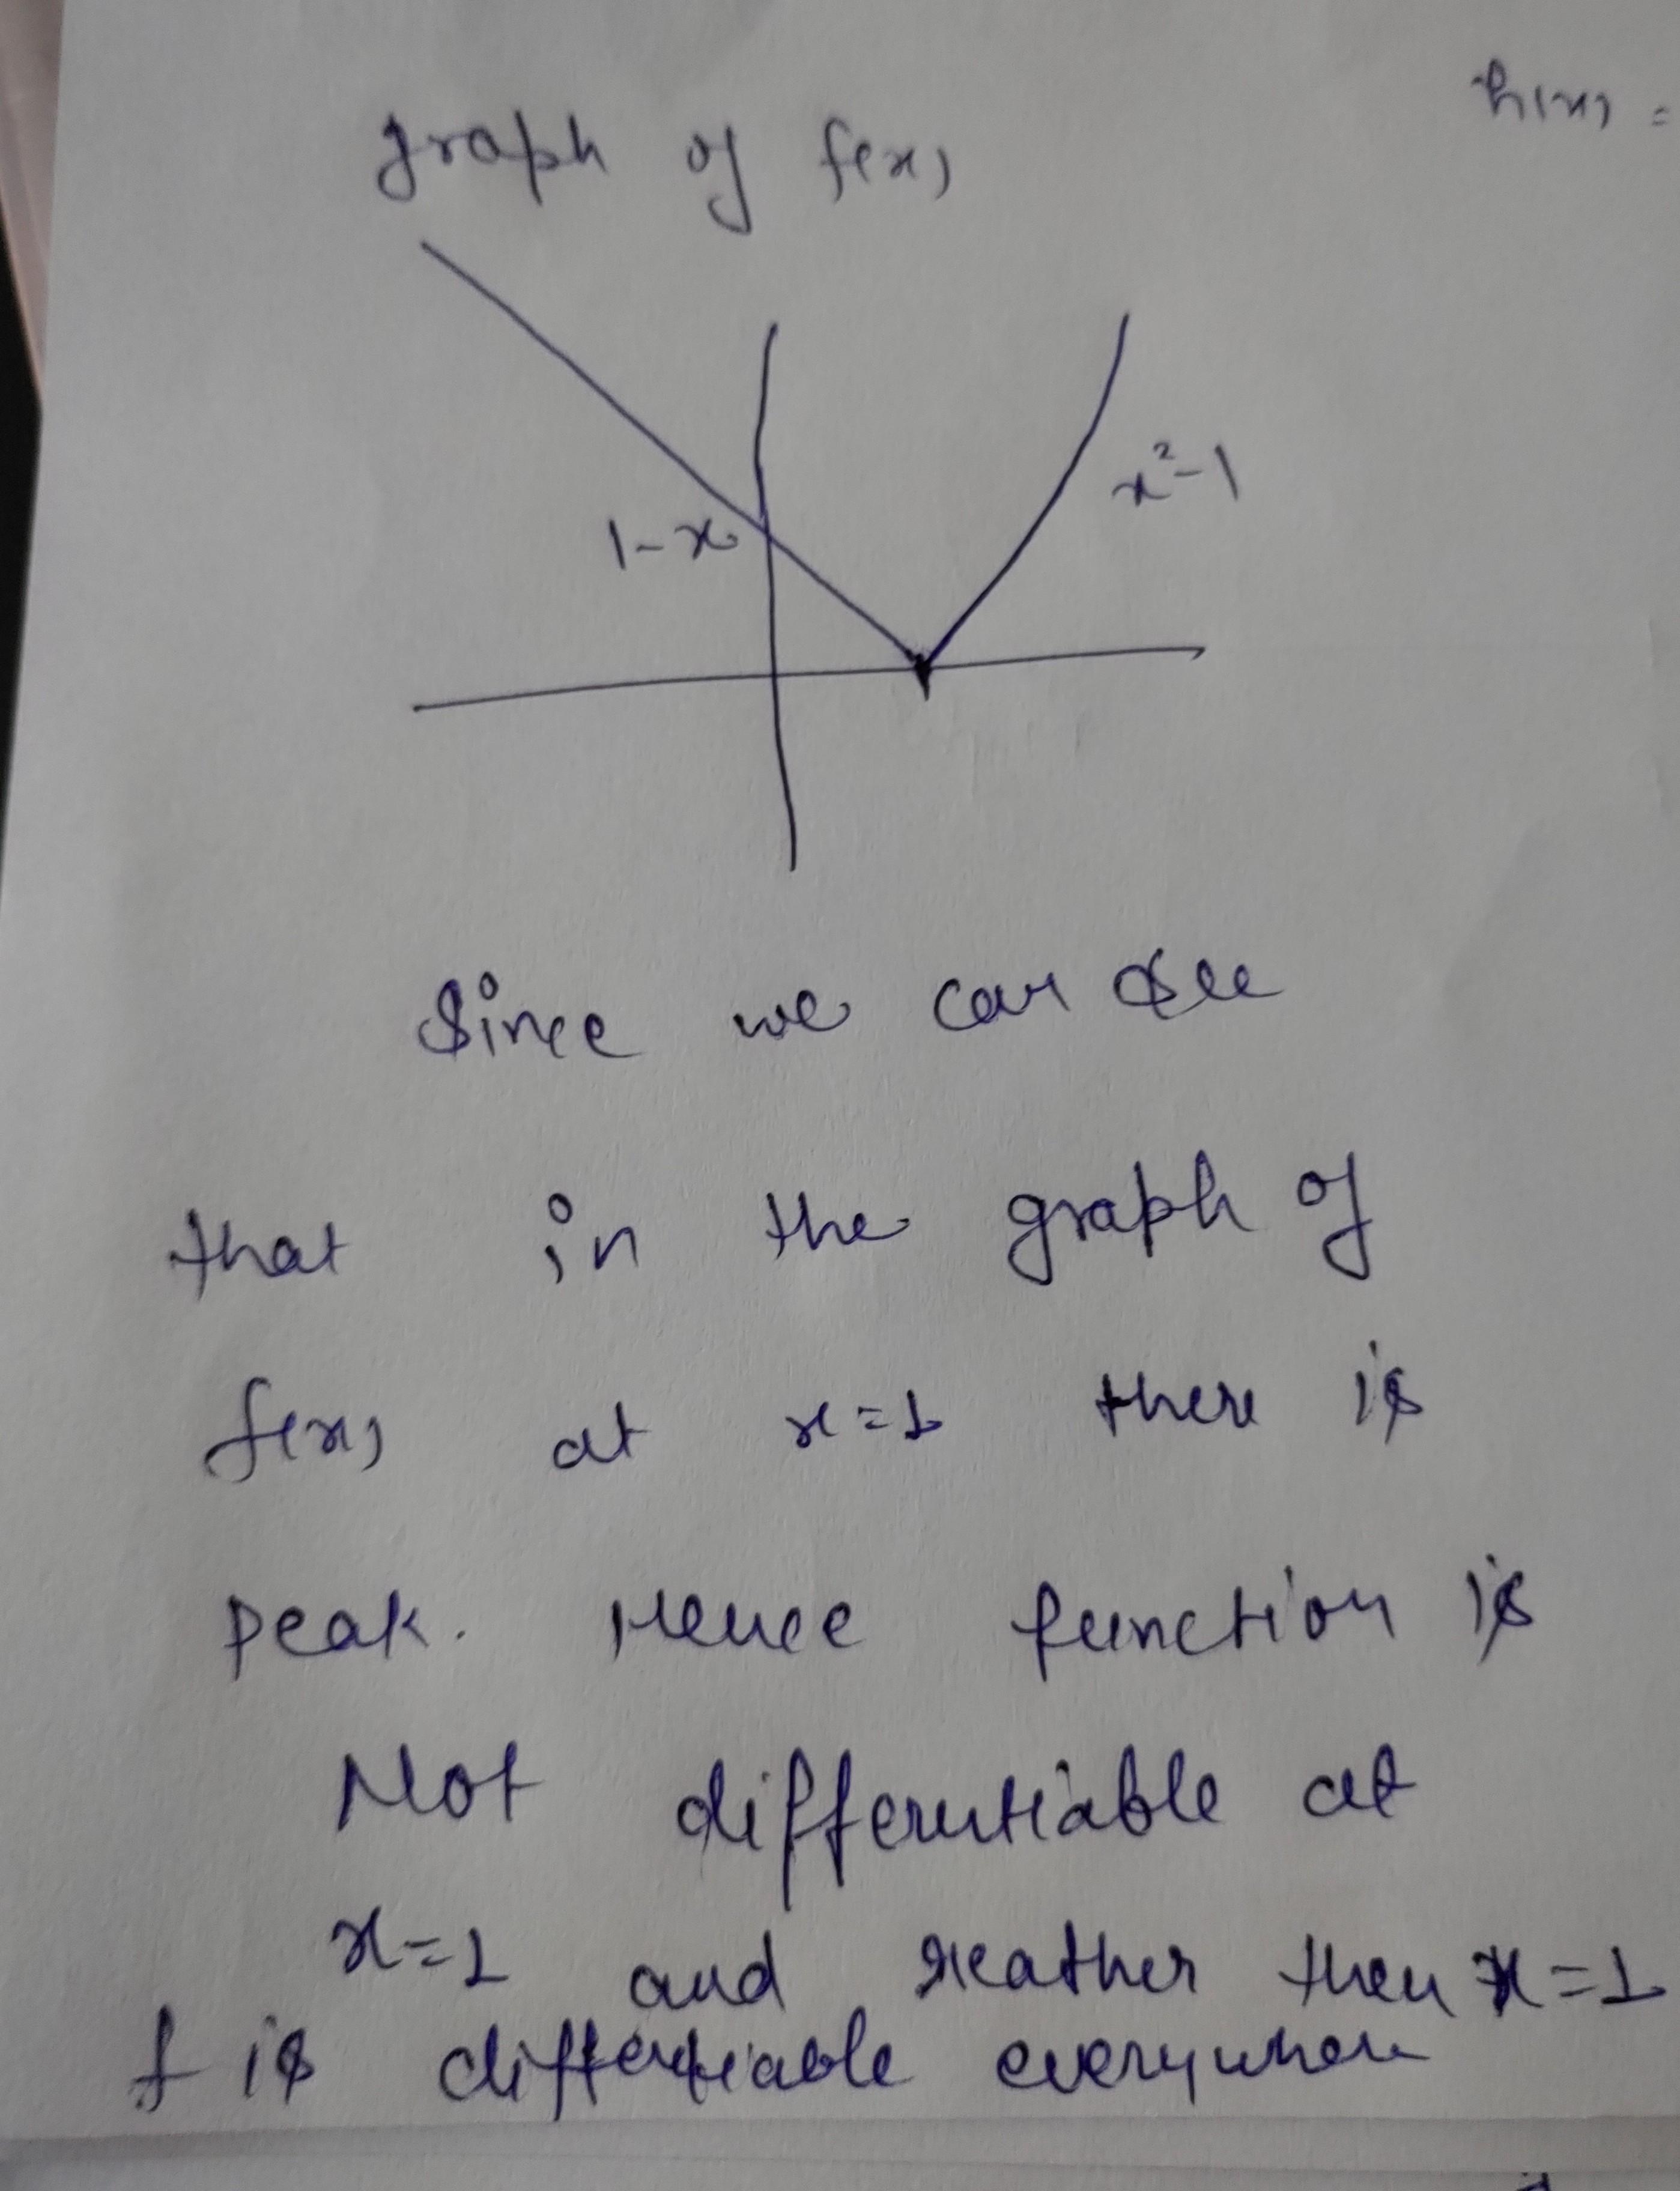 graph of f(x)
h(x) =
1-x
x²-1
Since we can see
that in the graph of
f(x) at x=1 there is
peak. Hence function is
Not differentiable at
x=1 and reather then x=1
f is differentiable everywhere